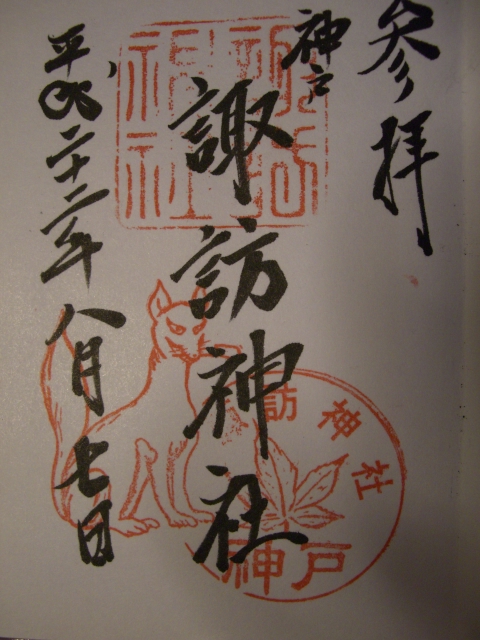 参拝
神戸
諏訪神社
平成二十二年
八月七日
諏訪
神社
訪神社
神戸